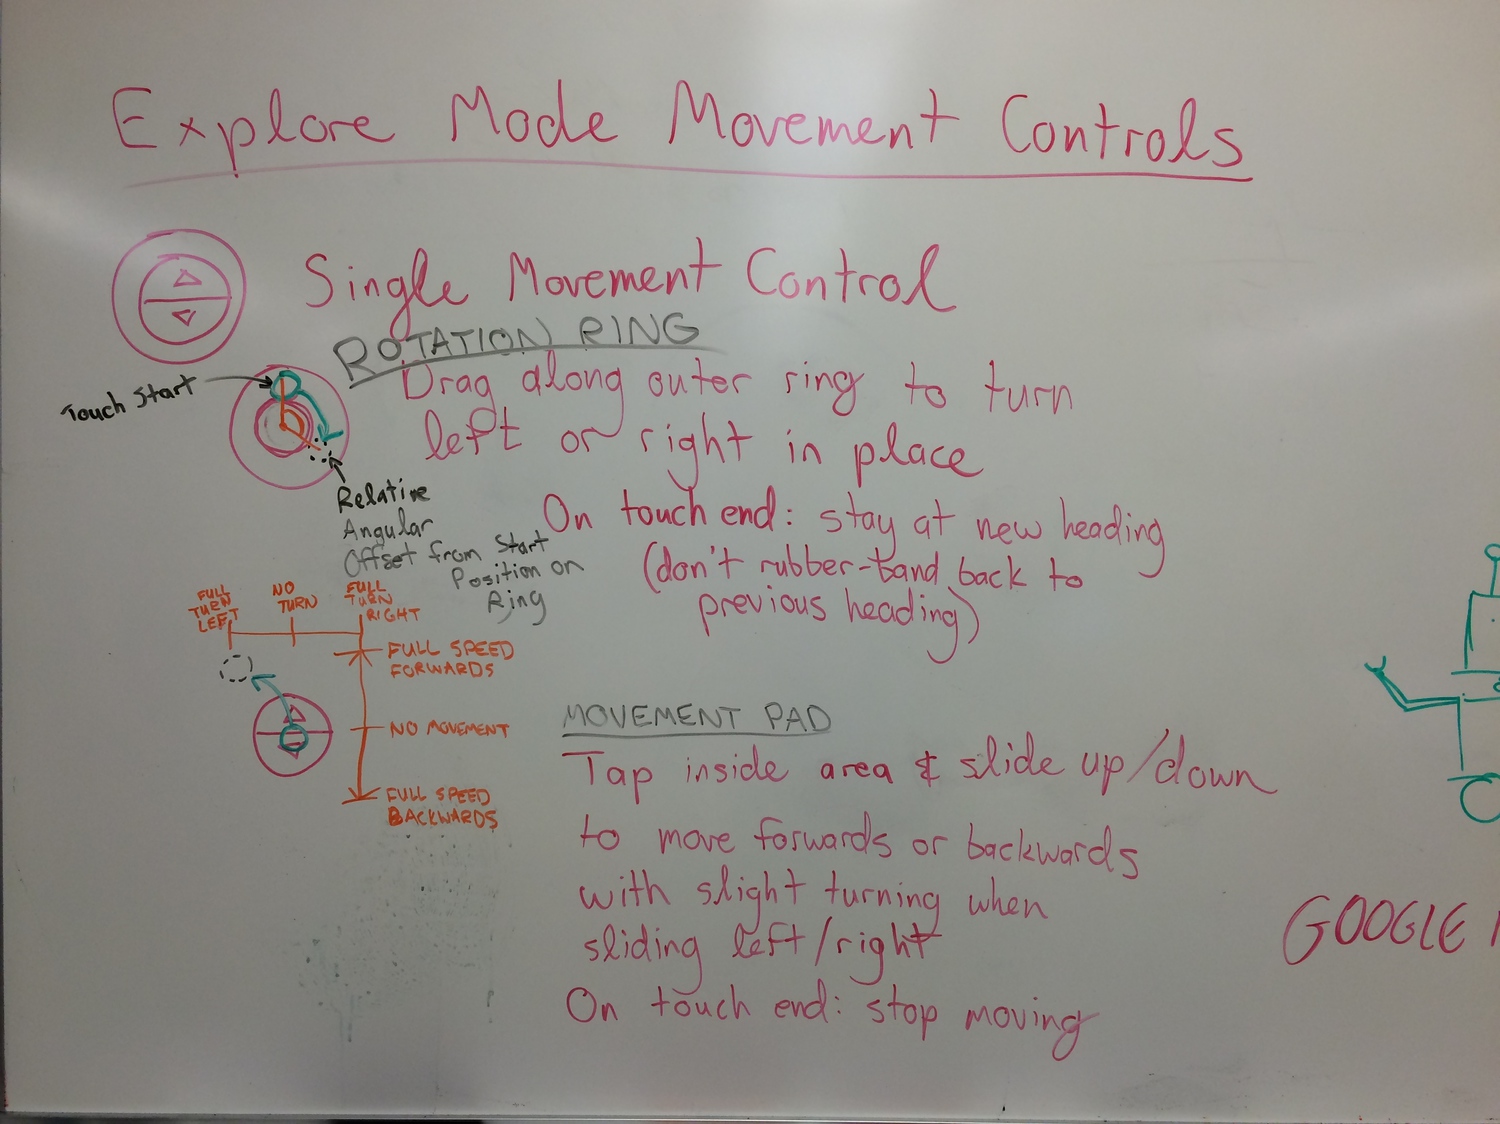 Explore Mode Movement Controls
Single Movement Control
ROTATION RING
Drag along outer ring to turn
left or right in place
On touch end: stay at new heading
(don't rubber-band back to
previous heading)
Touch Start
Relative
Angular
Offset from Start
Position on
Ring
FULL
TURN
LEFT
NO
TURN
FULL
TURN
RIGHT
FULL SPEED
FORWARDS
NO MOVEMENT
FULL SPEED
BACKWARDS
MOVEMENT PAD
Tap inside area & slide up/down
to move forwards or backwards
with slight turning when
sliding left/right
On touch end: stop moving
GOOGLE